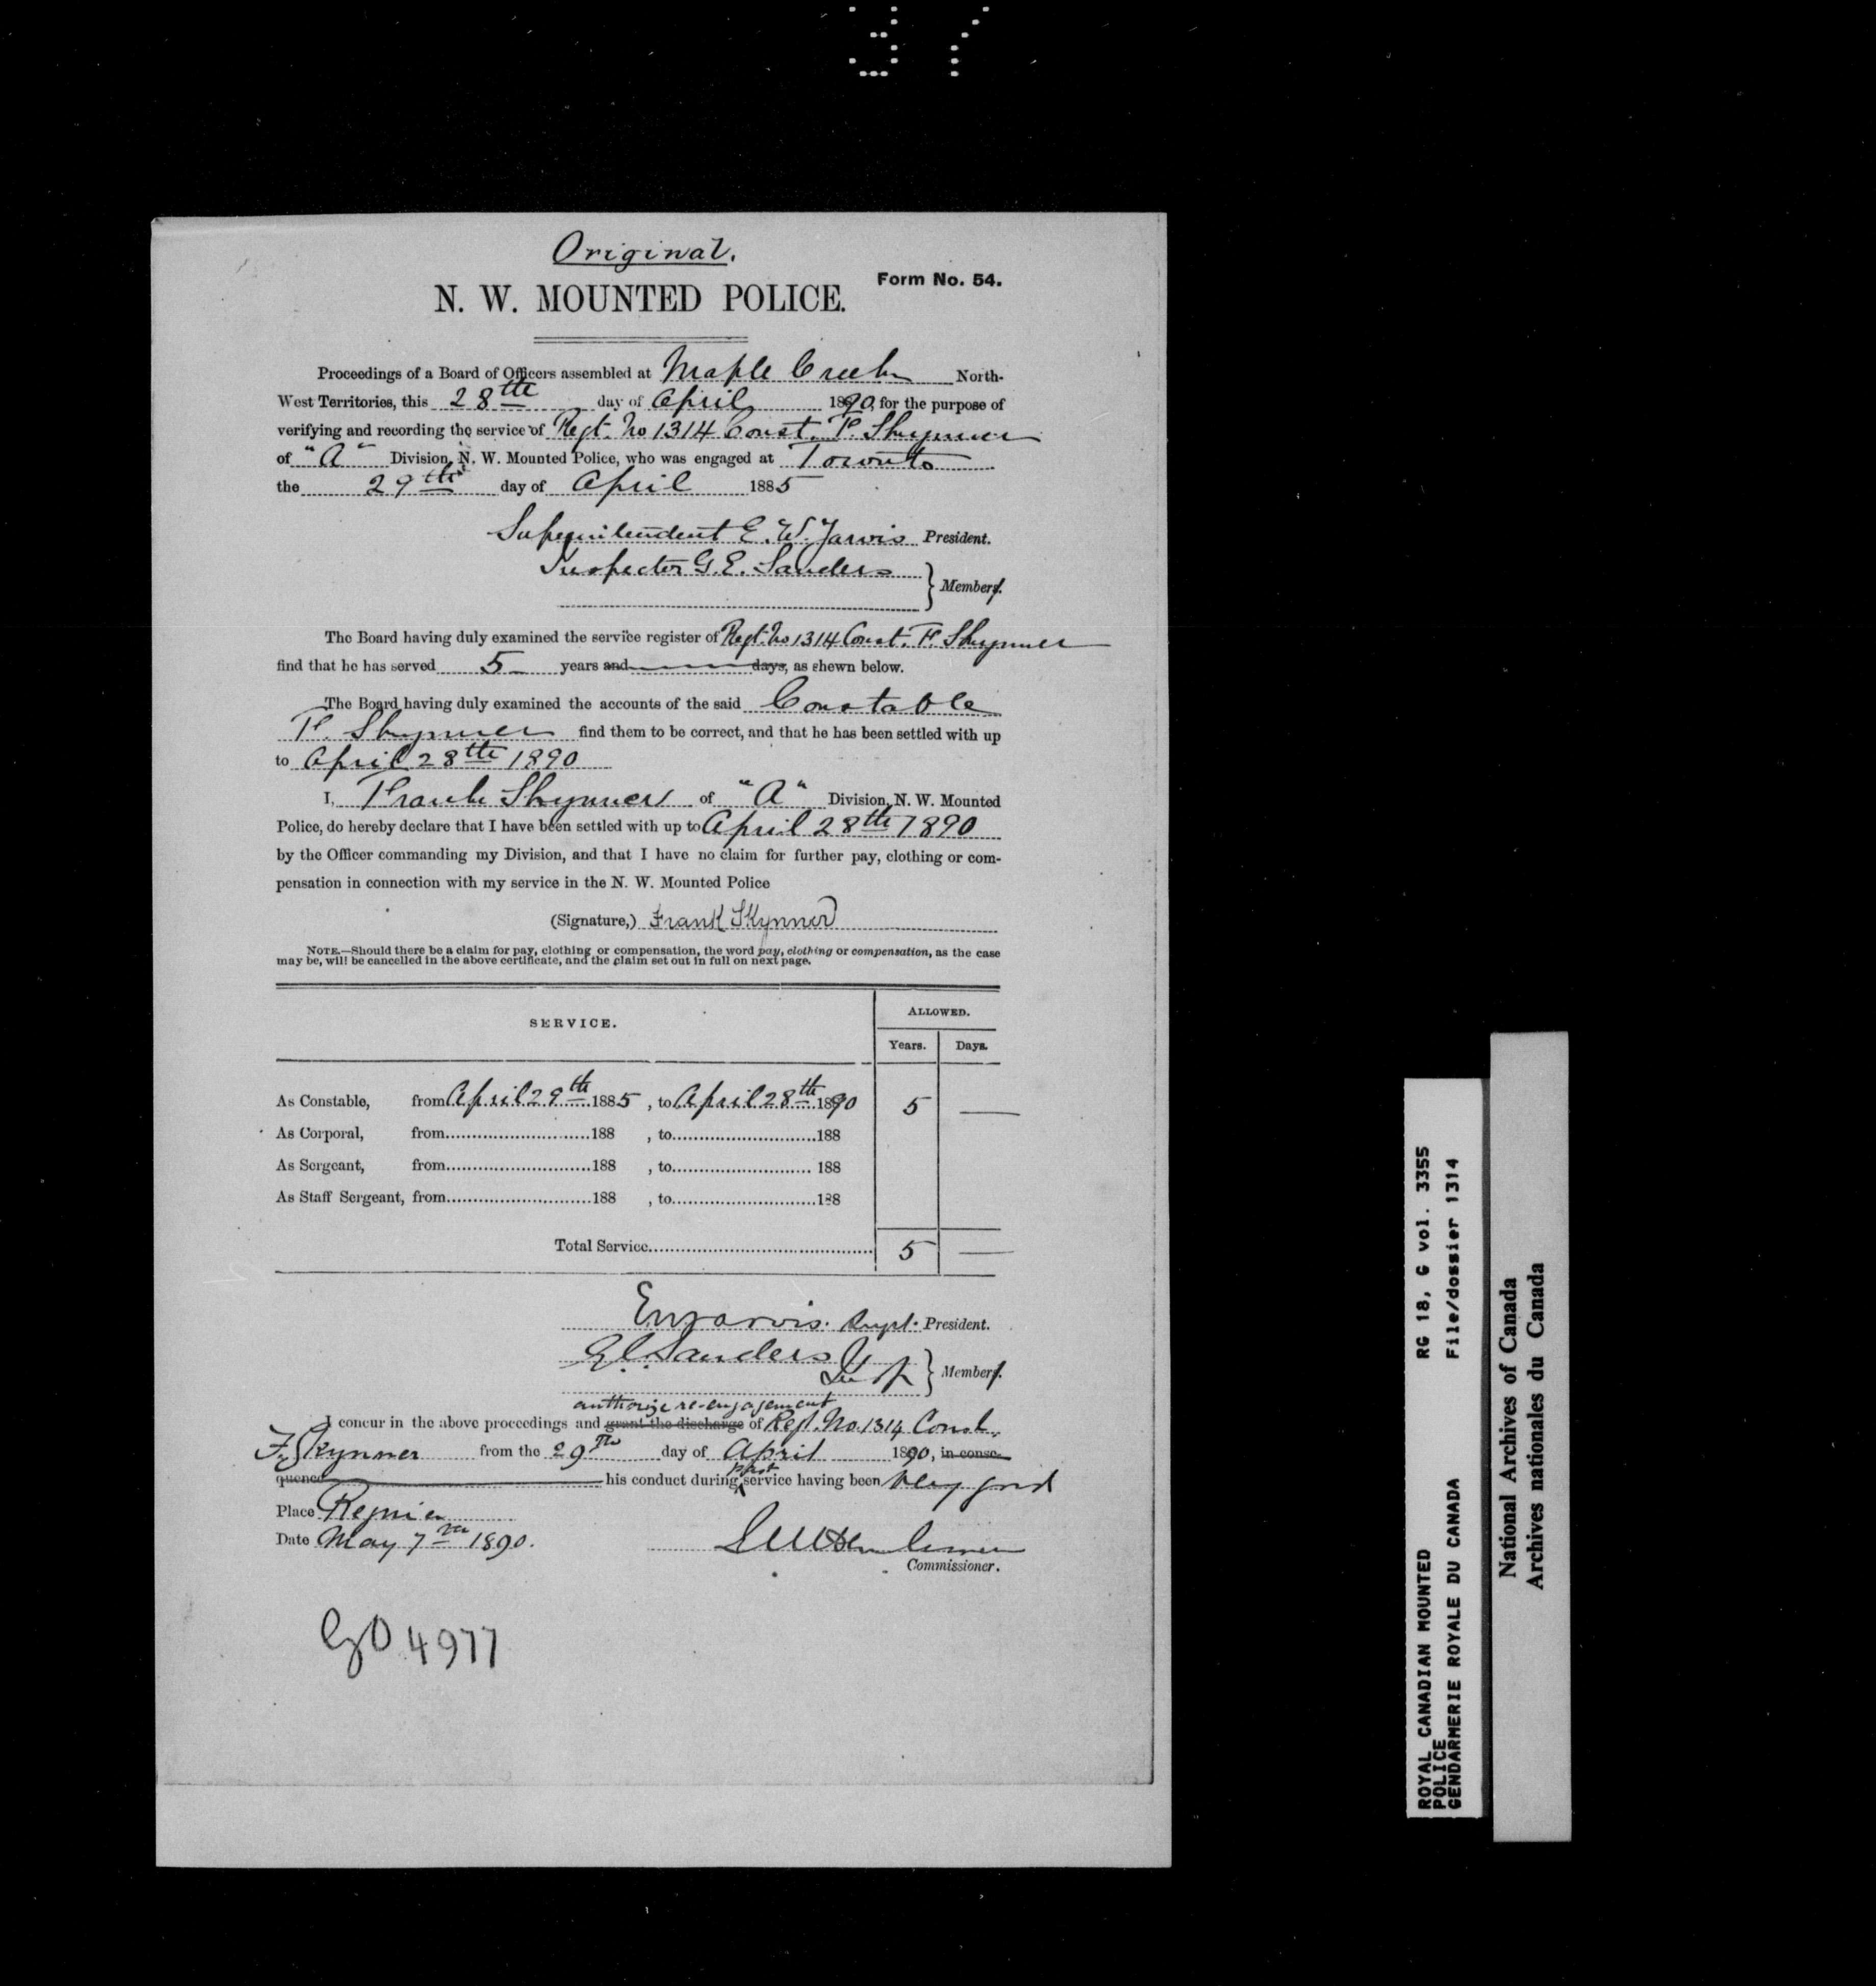 37
Original.
Form No. 54.
N. W. MOUNTED POLICE.
Proceedings of a Board of Officers assembled at Maple Creek North-
West Territories, this 28th day of April 1890, for the purpose of
verifying and recording the service of Regt. No 1314 Const. F. Skynner
of "A" Division, N. W. Mounted Police, who was engaged at Toronto
the 29th day of April 1885
Superintendent E. W. Jarvis President.
Inspector G. E. Sanders
Members.
The Board having duly examined the service register of Regt. No 1314 Const. F. Skynner
find that he has served 5 years and days, as shewn below.
The Board having duly examined the accounts of the said Constable
F. Skynner find them to be correct, and that he has been settled with up
to April 28th 1890
I, Frank Skynner of "A" Division, N. W. Mounted
Police, do hereby declare that I have been settled with up to April 28th 1890
by the Officer commanding my Division, and that I have no claim for further pay, clothing or com-
pensation in connection with my service in the N. W. Mounted Police
(Signature,) Frank Skynner
NOTE.—Should there be a claim for pay, clothing or compensation, the word pay, clothing or compensation, as the case
may be, will be cancelled in the above certificate, and the claim set out in full on next page.
SERVICE.
ALLOWED.
Years. Days.
As Constable, from April 29th 1885, to April 28th 1890 5 —
As Corporal, from 188 , to 188
As Sergeant, from 188 , to 188
As Staff Sergeant, from 188 , to 188
Total Service 5 —
EWJarvis. Supt. President.
G.E. Sanders Insp
Members.
authorize re-engagement
I concur in the above proceedings and grant the discharge of Regt. No. 1314 Const.
F. Skynner from the 29th day of April 1890, in conse-
quence his conduct during past service having been very good
Place Regina
Date May 7th 1890.
Commissioner.
4977
ROYAL CANADIAN MOUNTED RG 18, G vol. 3355
POLICE
GENDARMERIE ROYALE DU CANADA File/dossier 1314
National Archives of Canada
Archives nationales du Canada